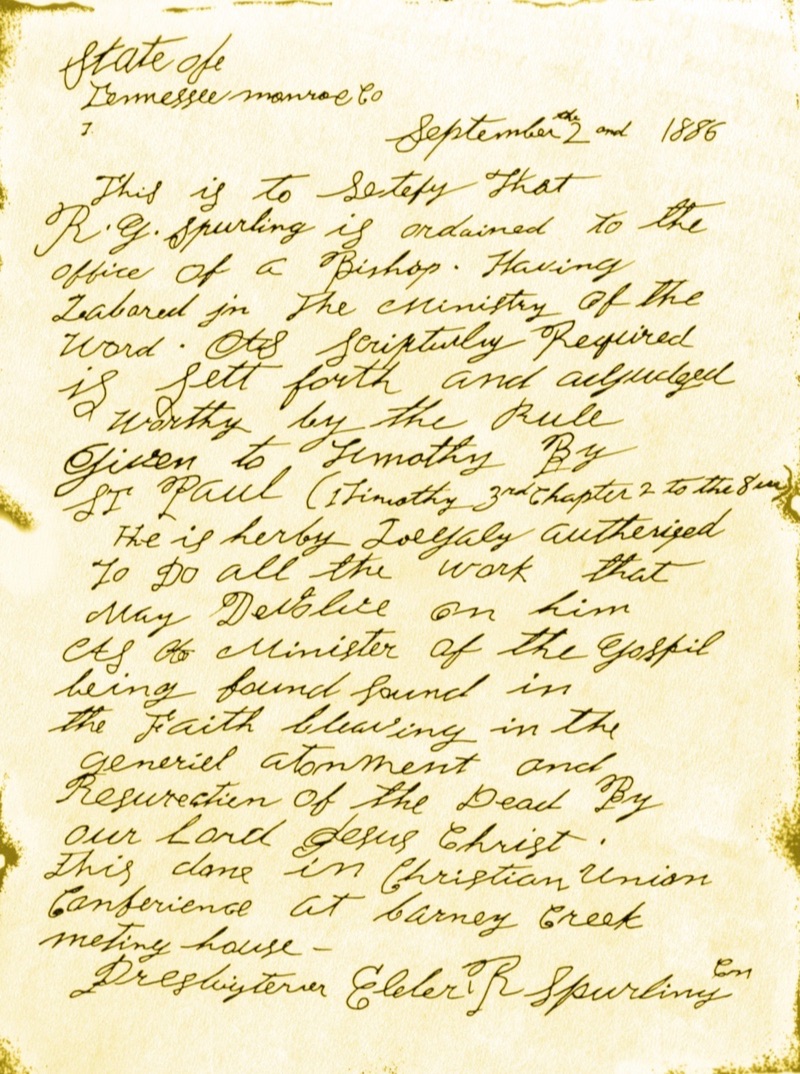 State of
Tennessee monroe Co
September the 2 and 1886
This is to Setefy That
R. G. Spurling is ordained to the
office of a Bishop. Having
Labored in The Ministry of the
Word. As Scripturly Required
is Sett forth and adjudged
Worthy by the Rule
Given to Timothy By
ST PAUL (1 Timothy 3rd Chapter 2 to the 8
He is herby Leegaly autherised
To Do all the work that
May Devolve on him
AS a Minister of the Gospil
being found Sound in
the Faith bleaving in the
generiel atonment and
Resurection of the Dead By
our Lord Jesus Christ.
This done in Christian Union
Conferience at barney Creek
meting house -
Presbyterer Elder R Spurling